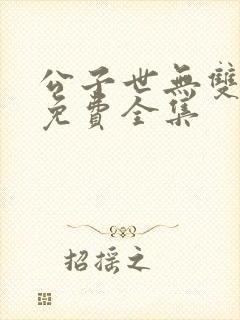 公子世無雙
免費全集
招摇之